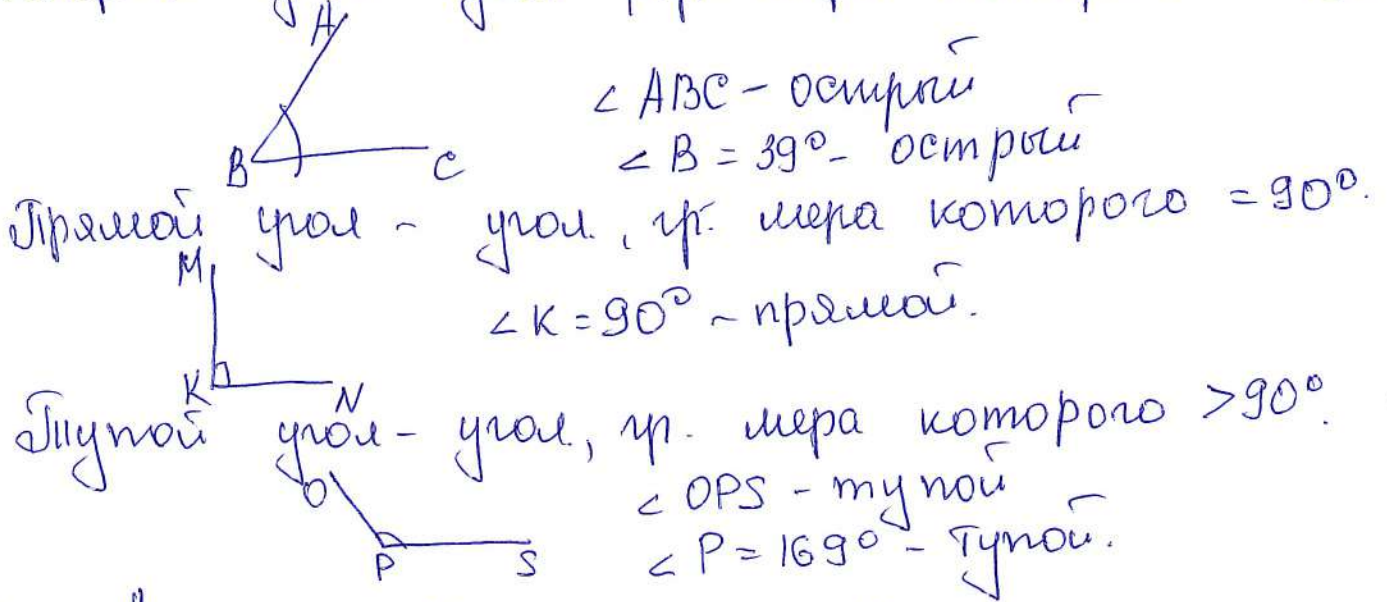 A
∠ABC - острый
∠B = 39° - острый
B C
Прямой угол - угол, гр. мера которого = 90°.
M
∠K = 90° - прямой.
K N
Тупой угол - угол, гр. мера которого >90°.
O
∠OPS - тупой
∠P = 169° - тупой.
P S